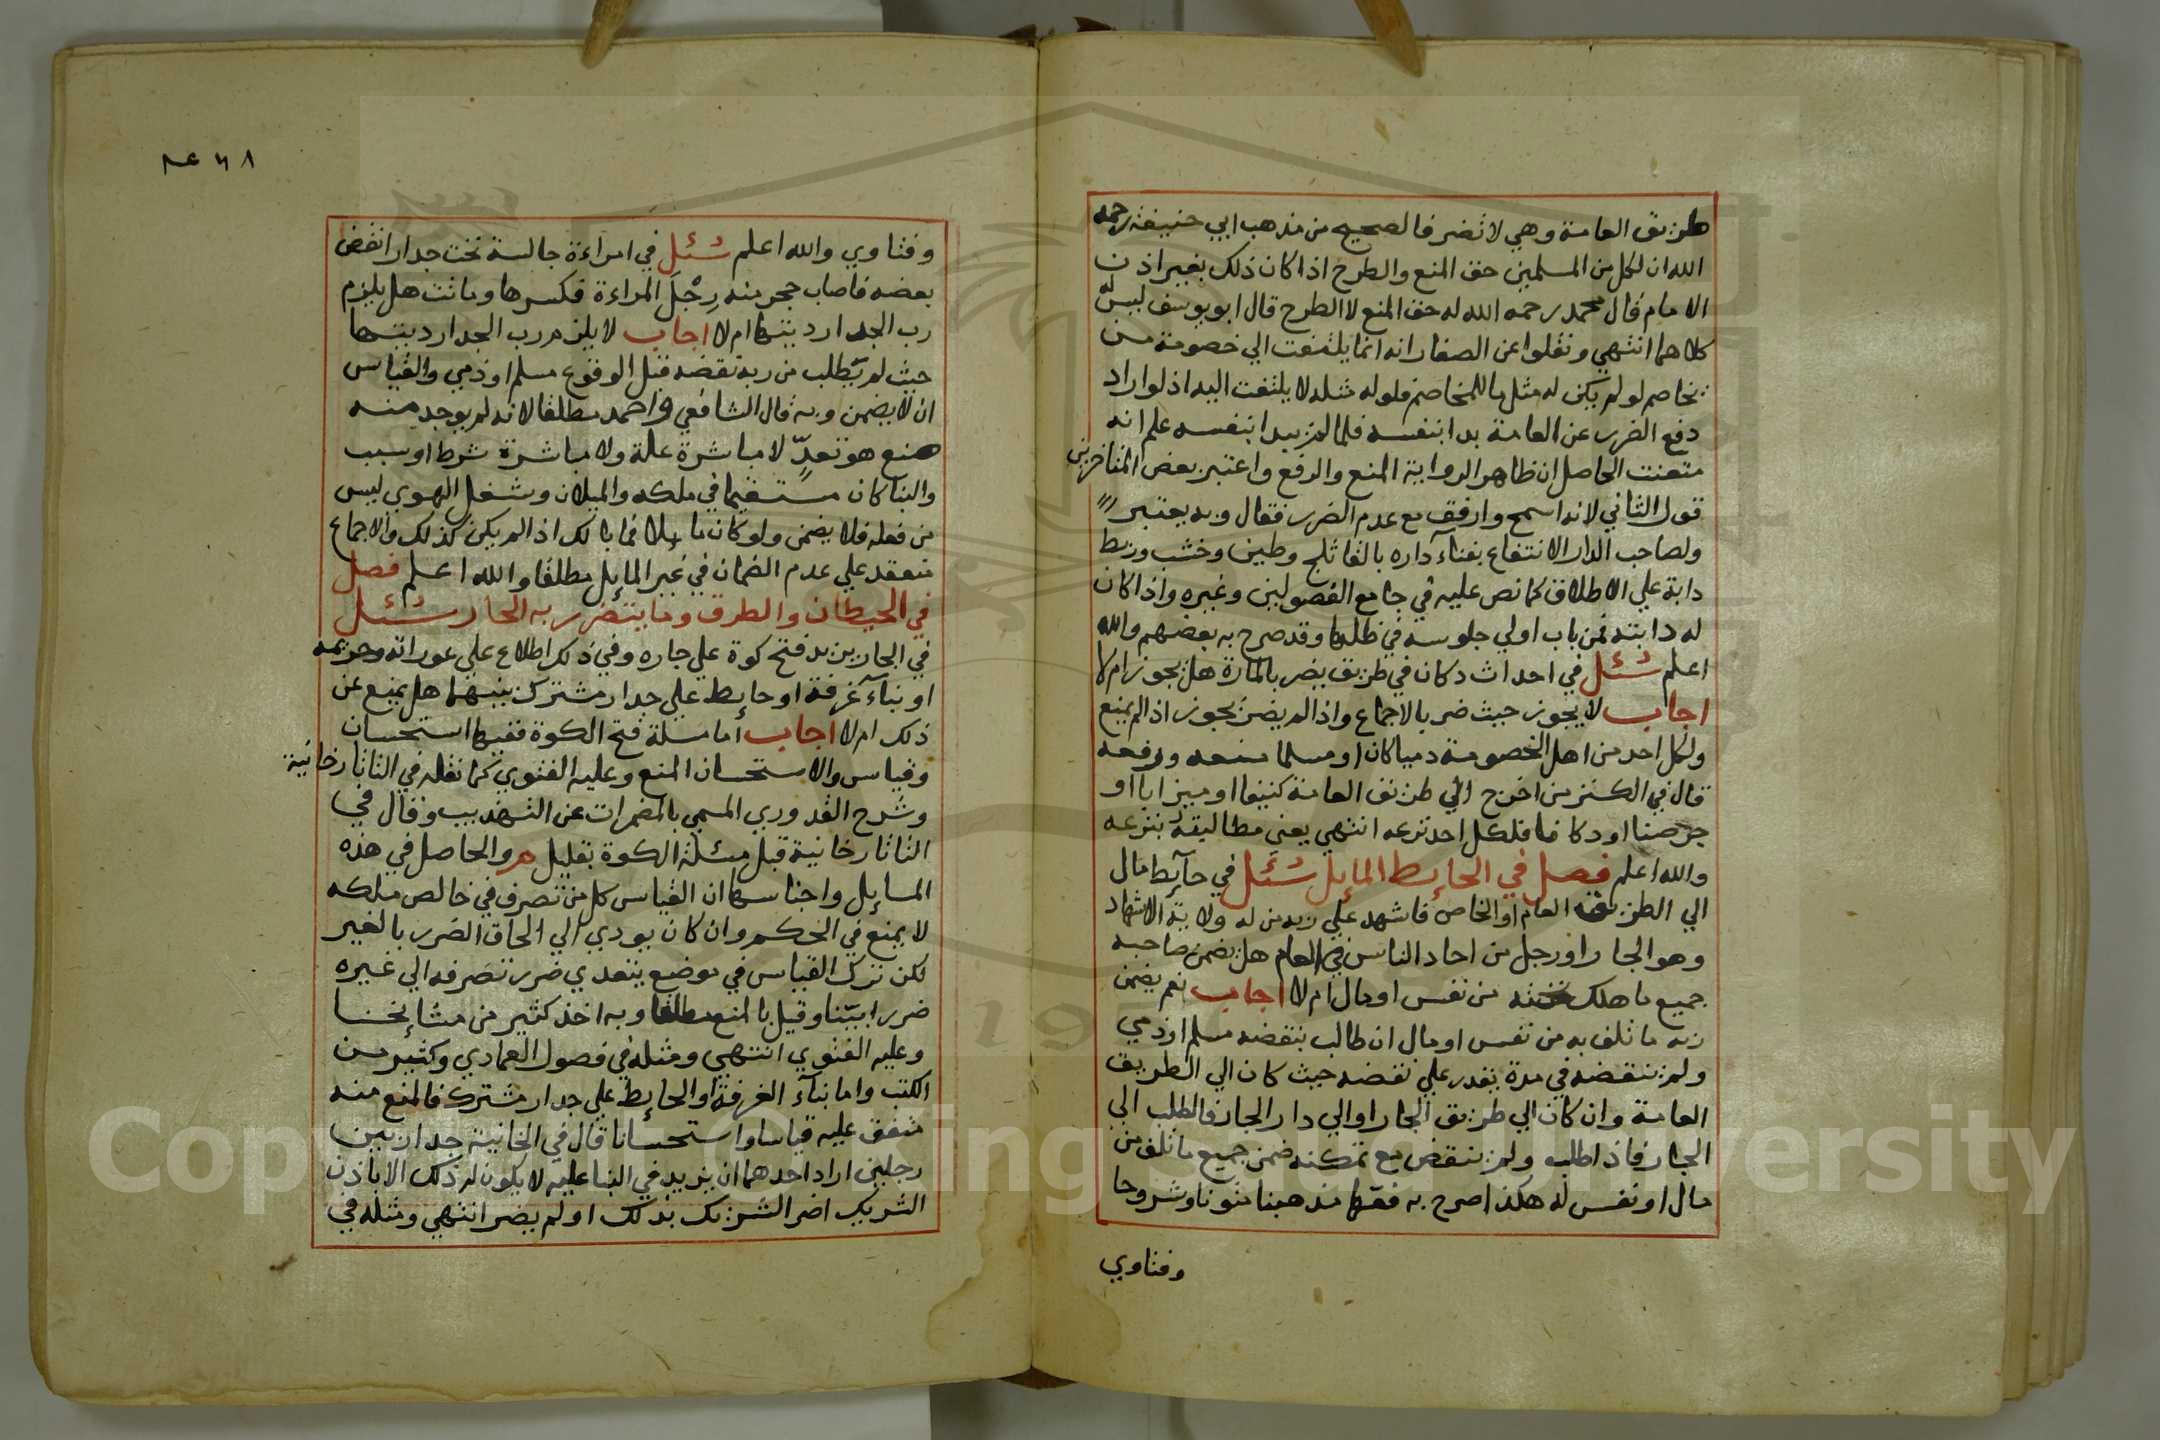 طريق العامة وهي لا تضر فالصحيح من مذهب ابي حنيفة رحمه
الله ان لكل من المسلمين حق المنع والطرح اذا كان ذلك بغير اذن
الامام قال محمد رحمه الله له حق المنع لا الطرح قال ابو يوسف ليس له
كلاهما انتهي ونقلوا عن الصفار انه انما يلتفت الي خصومة من
يخاصم لو لم يكن له مثل ما للمخاصم فلو له مثله لا يلتفت اليه اذ لو اراد
دفع الضرر عن العامة بدا بنفسه فلما لم يبدا بنفسه علم انه
متعنت الحاصل ان ظاهر الرواية المنع والرفع واعتبر بعض المتاخرين
قول الثاني لانه اسمح وارفق مع عدم الضرر فقال وبه يعتبر
ولصاحب الدار الانتفاع بفناء داره بالقا ثلج وطين وخشب وربط
دابة علي الاطلاق كما نص عليه في جامع الفصولين وغيره واذا كان
له دابته فمن باب اولي جلوسه في ظلها وقد صرح به بعضهم والله
اعلم سئل في احداث دكان في طريق يضر بالمارة هل يجوز ام لا
اجاب لا يجوز حيث ضر بالاجماع واذا لم يضر يجوز اذا لم يمنع
ولكل احد من اهل الخصومة ذميا كان او مسلما منعه ورفعه
قال في الكنز من اخرج الي طريق العامة كنيفا او ميزابا او
جرصنا او دكانا فلكل احد نزعه انتهي يعني مطالبته بنزعه
والله اعلم فصل في الحايط المايل سئل في حآيط مال
الي الطريق العام او الخاص فاشهد علي ربه من له ولاية الاشهاد
وهو الجار او رجل من احاد الناس في العام هل يضمن صاحبه
جميع ما هلك تحته من نفس او مال ام لا اجاب نعم يضمن
ربه ما تلف به من نفس او مال ان طالب بنقضه مسلم او ذمي
ولم ينقضه في مدة يقدر علي نقضه حيث كان الي الطريق
العامة وان كان الي طريق الجار او الي دار الجار فالطلب الي
الجار فاذا طلبه ولم ينقض مع تمكنه ضمن جميع ما تلف من
مال او نفس له هكذا صرح به فقها مذهبنا متونا وشروحا
وفتاوي
وفتاوي والله اعلم سئل في امراءة جالسة تحت جدار انقض
بعضه فاصاب حجر منه رِجْلَ المراءة فكسرها وماتت هل يلزم
رب الجدار ديتها ام لا اجاب لا يلزم رب الجدار ديتها
حيث لم يطلب من ربه نقضه قبل الوقوع مسلم او ذمي والقياس
ان لا يضمن وبه قال الشافعي واحمد مطلقا لانه لم يوجد منه
صنع هو تعدٍّ لا مباشرة علة ولا مباشرة شرط او سبب
والبنا كان مستقيما في ملكه والميلان وشغل الهوي ليس
من فعله فلا يضمن ولو كان مايلا فما بالك اذا لم يكن كذلك والاجماع
منعقد علي عدم الضمان في غير المايل مطلقا والله اعلم فصل
في الحيطان والطرق وما يتضرر به الجار سئل
في الجار يريد فتح كوة علي جاره وفي ذلك اطلاع علي عوراته وحريمه
او بنآء غرفة او حايط علي جدار مشترك بينهما هل يمنع عن
ذلك ام لا اجاب اما مسئلة فتح الكوة ففيها استحسان
وقياس والاستحسان المنع وعليه الفتوي كما نقله في التاتارخانية
وشرح القدوري المسمي بالمضمرات عن التهذيب وقال في
التاتارخانية قبل مسئلة الكوة بقليل م والحاصل في هذه
المسايل واجناسها ان القياس كل من تصرف في خالص ملكه
لا يمنع في الحكم وان كان يودي الي الحاق الضرر بالغير
لكن ترك القياس في موضع يتعدي ضرر تصرفه الي غيره
ضررا بينا وقيل بالمنع مطلقا وبه اخذ كثير من مشايخنا
وعليه الفتوي انتهي ومثله في فصول العمادي وكثير من
الكتب واما بنآء الغرفة او الحايط علي جدار مشترك فالمنع منه
متفق عليه قياسا واستحسانا قال في الخانية جدار بين
رجلين اراد احدهما ان يزيد في البنا عليه لا يكون له ذلك الا باذن
الشريك اضر الشريك بذلك او لم يضر انتهي ومثله في
Copyright © King Saud University